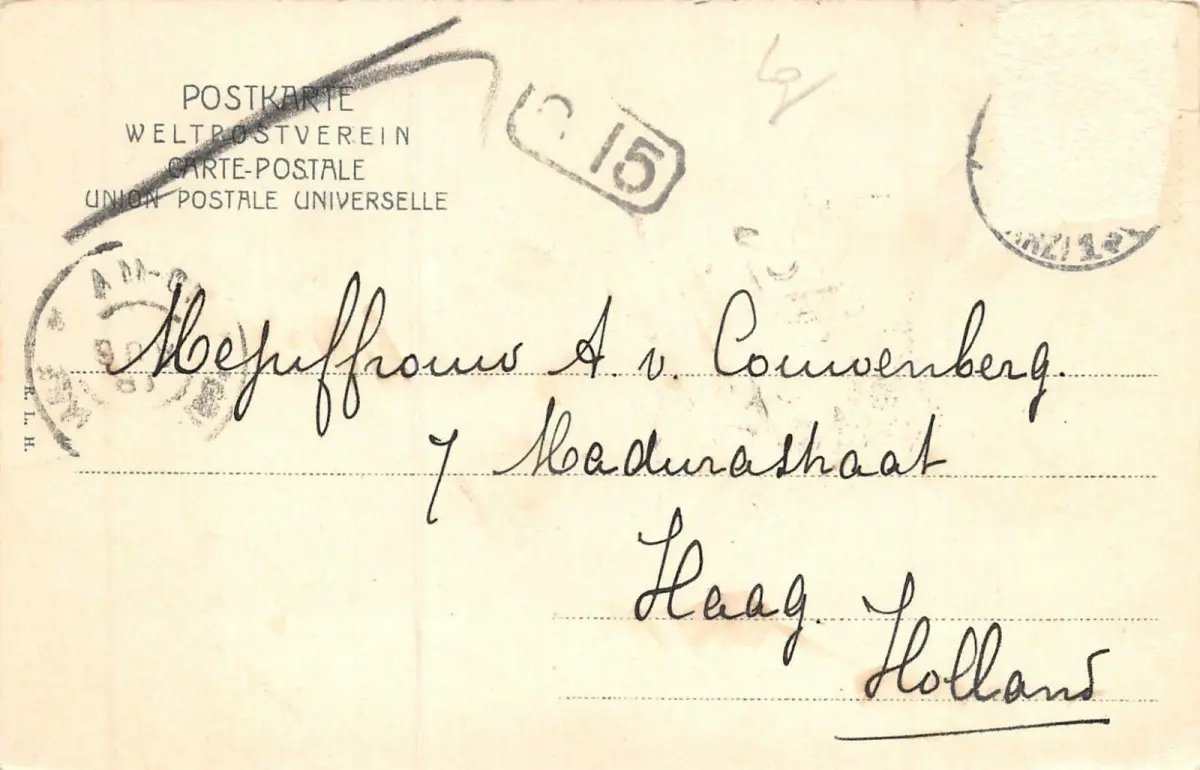 POSTKARTE
WELTPOSTVEREIN
CARTE-POSTALE
UNION POSTALE UNIVERSELLE
15
Mejuffrouw A. v. Couwenberg.
7 Madurastraat
Haag.
Holland
R. L. H.